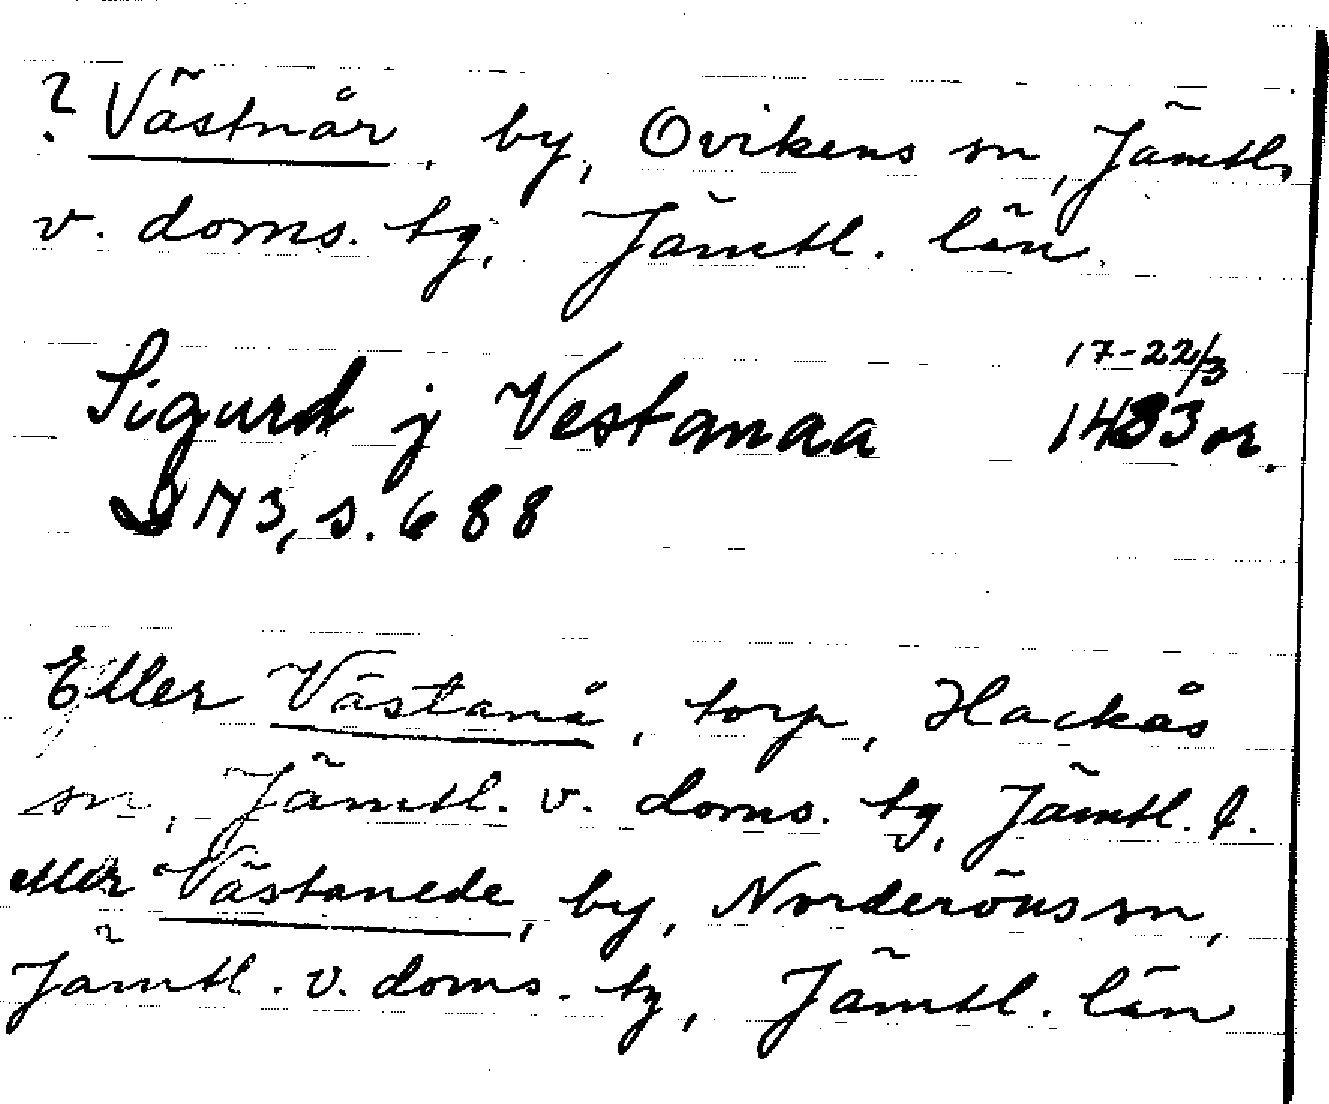 ? Västnår, by, Ovikens sn, Jämtl.
v. doms. tg, Jämtl. län.
Sigurd j Vestanaa 17-22/3
1433 or.
173, s. 688
Eller Västanå, torp, Hackås
sn, Jämtl. v. doms. tg, Jämtl. l.
eller Västanede, by, Norderöns sn,
Jämtl. v. doms. tg, Jämtl. län